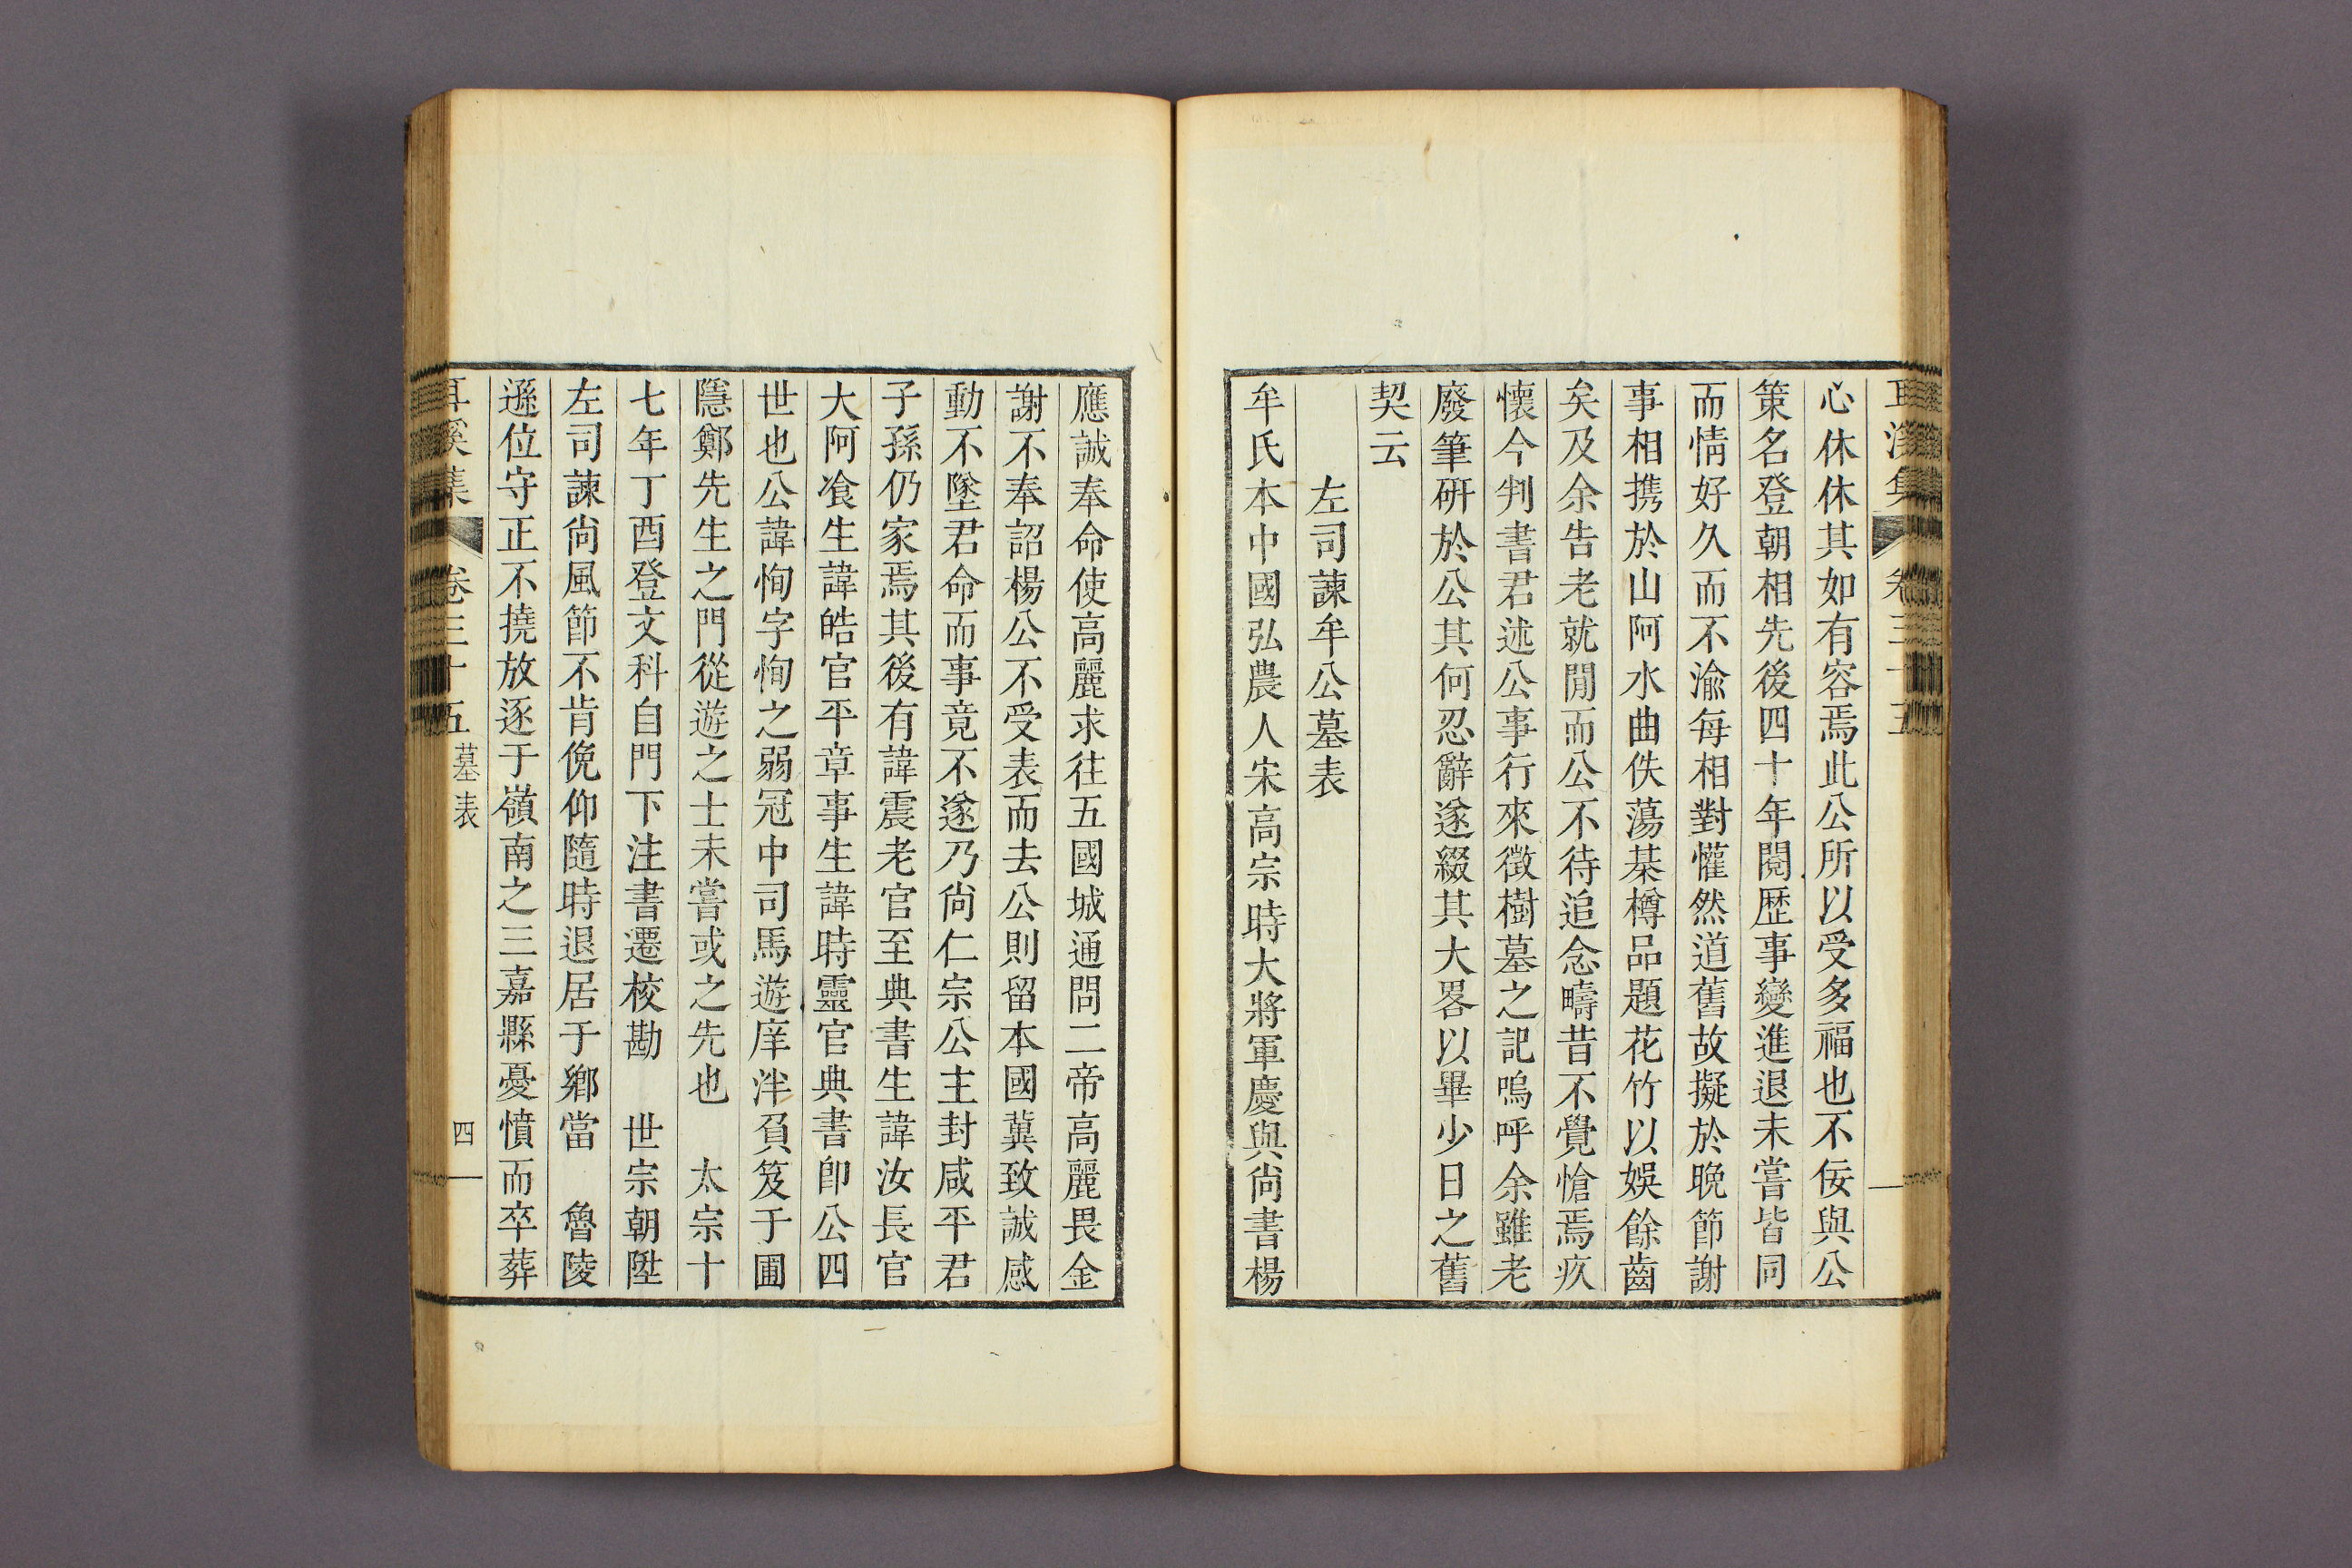 耳溪集 卷三十五
心休休其如有容焉此公所以受多福也不佞與公
策名登朝相先後四十年閱歷事變進退未嘗皆同
而情好久而不渝每相對懽然道舊故擬於晩節謝
事相携於山阿水曲佚蕩棊樽品題花竹以娛餘齒
矣及余告老就閒而公不待追念疇昔不覺愴焉疚
懷今判書君述公事行來徵樹墓之記嗚呼余雖老
廢筆硏於公其何忍辭遂綴其大畧以畢少日之舊
契云
左司諫牟公墓表
牟氏本中國弘農人宋高宗時大將軍慶與尙書楊
應誠奉命使高麗求往五國城通問二帝高麗畏金
謝不奉詔楊公不受表而去公則留本國冀致誠感
動不墜君命而事竟不遂乃尙仁宗公主封咸平君
子孫仍家焉其後有諱震老官至典書生諱汝長官
大阿飡生諱皓官平章事生諱時靈官典書卽公四
世也公諱恂字恂之弱冠中司馬遊庠泮負笈于圃
隱鄭先生之門從遊之士未嘗或之先也 太宗十
七年丁酉登文科自門下注書遷校勘 世宗朝陞
左司諫尙風節不肯俛仰隨時退居于鄕當 魯陵
遜位守正不撓放逐于嶺南之三嘉縣憂憤而卒葬
耳溪集 卷三十五 墓表 四